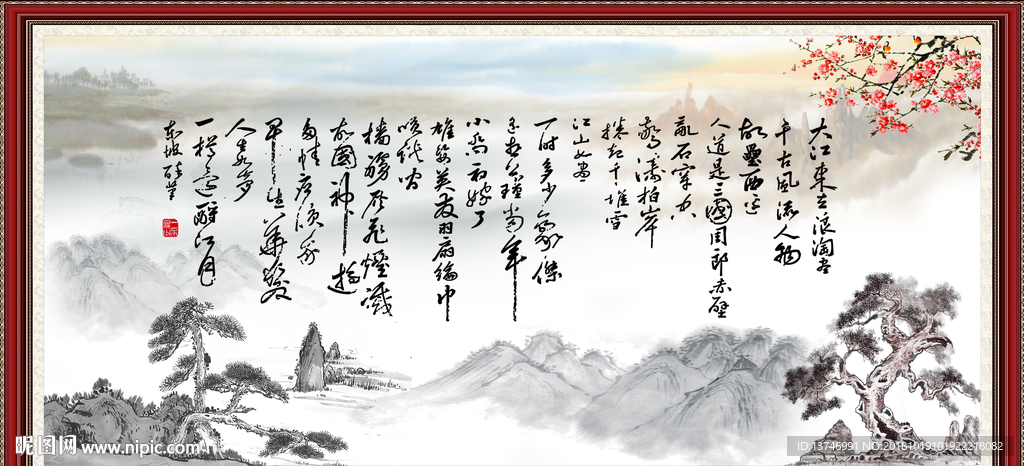 大江東去浪淘尽
千古风流人物
故壘西邊
人道是三國周郎赤壁
亂石穿空
驚濤拍岸
捲起千堆雪
江山如畫
一时多少豪傑
遥想公瑾當年
小喬初嫁了
雄姿英发羽扇綸巾
谈笑间
檣艣灰飞煙滅
故國神遊
多情应笑我
早生华髮
人生如梦
一樽還酹江月
东坡
昵图网 www.nipic.com
ID:13746991 NO:20181019101922218082